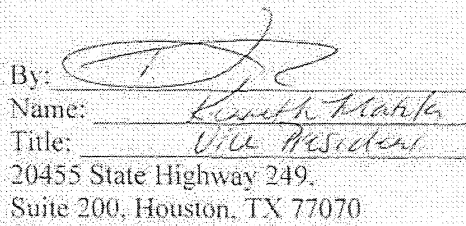 By:
Name: Kenneth
Title: Vice President
20455 State Highway 249,
Suite 200, Houston, TX 77070